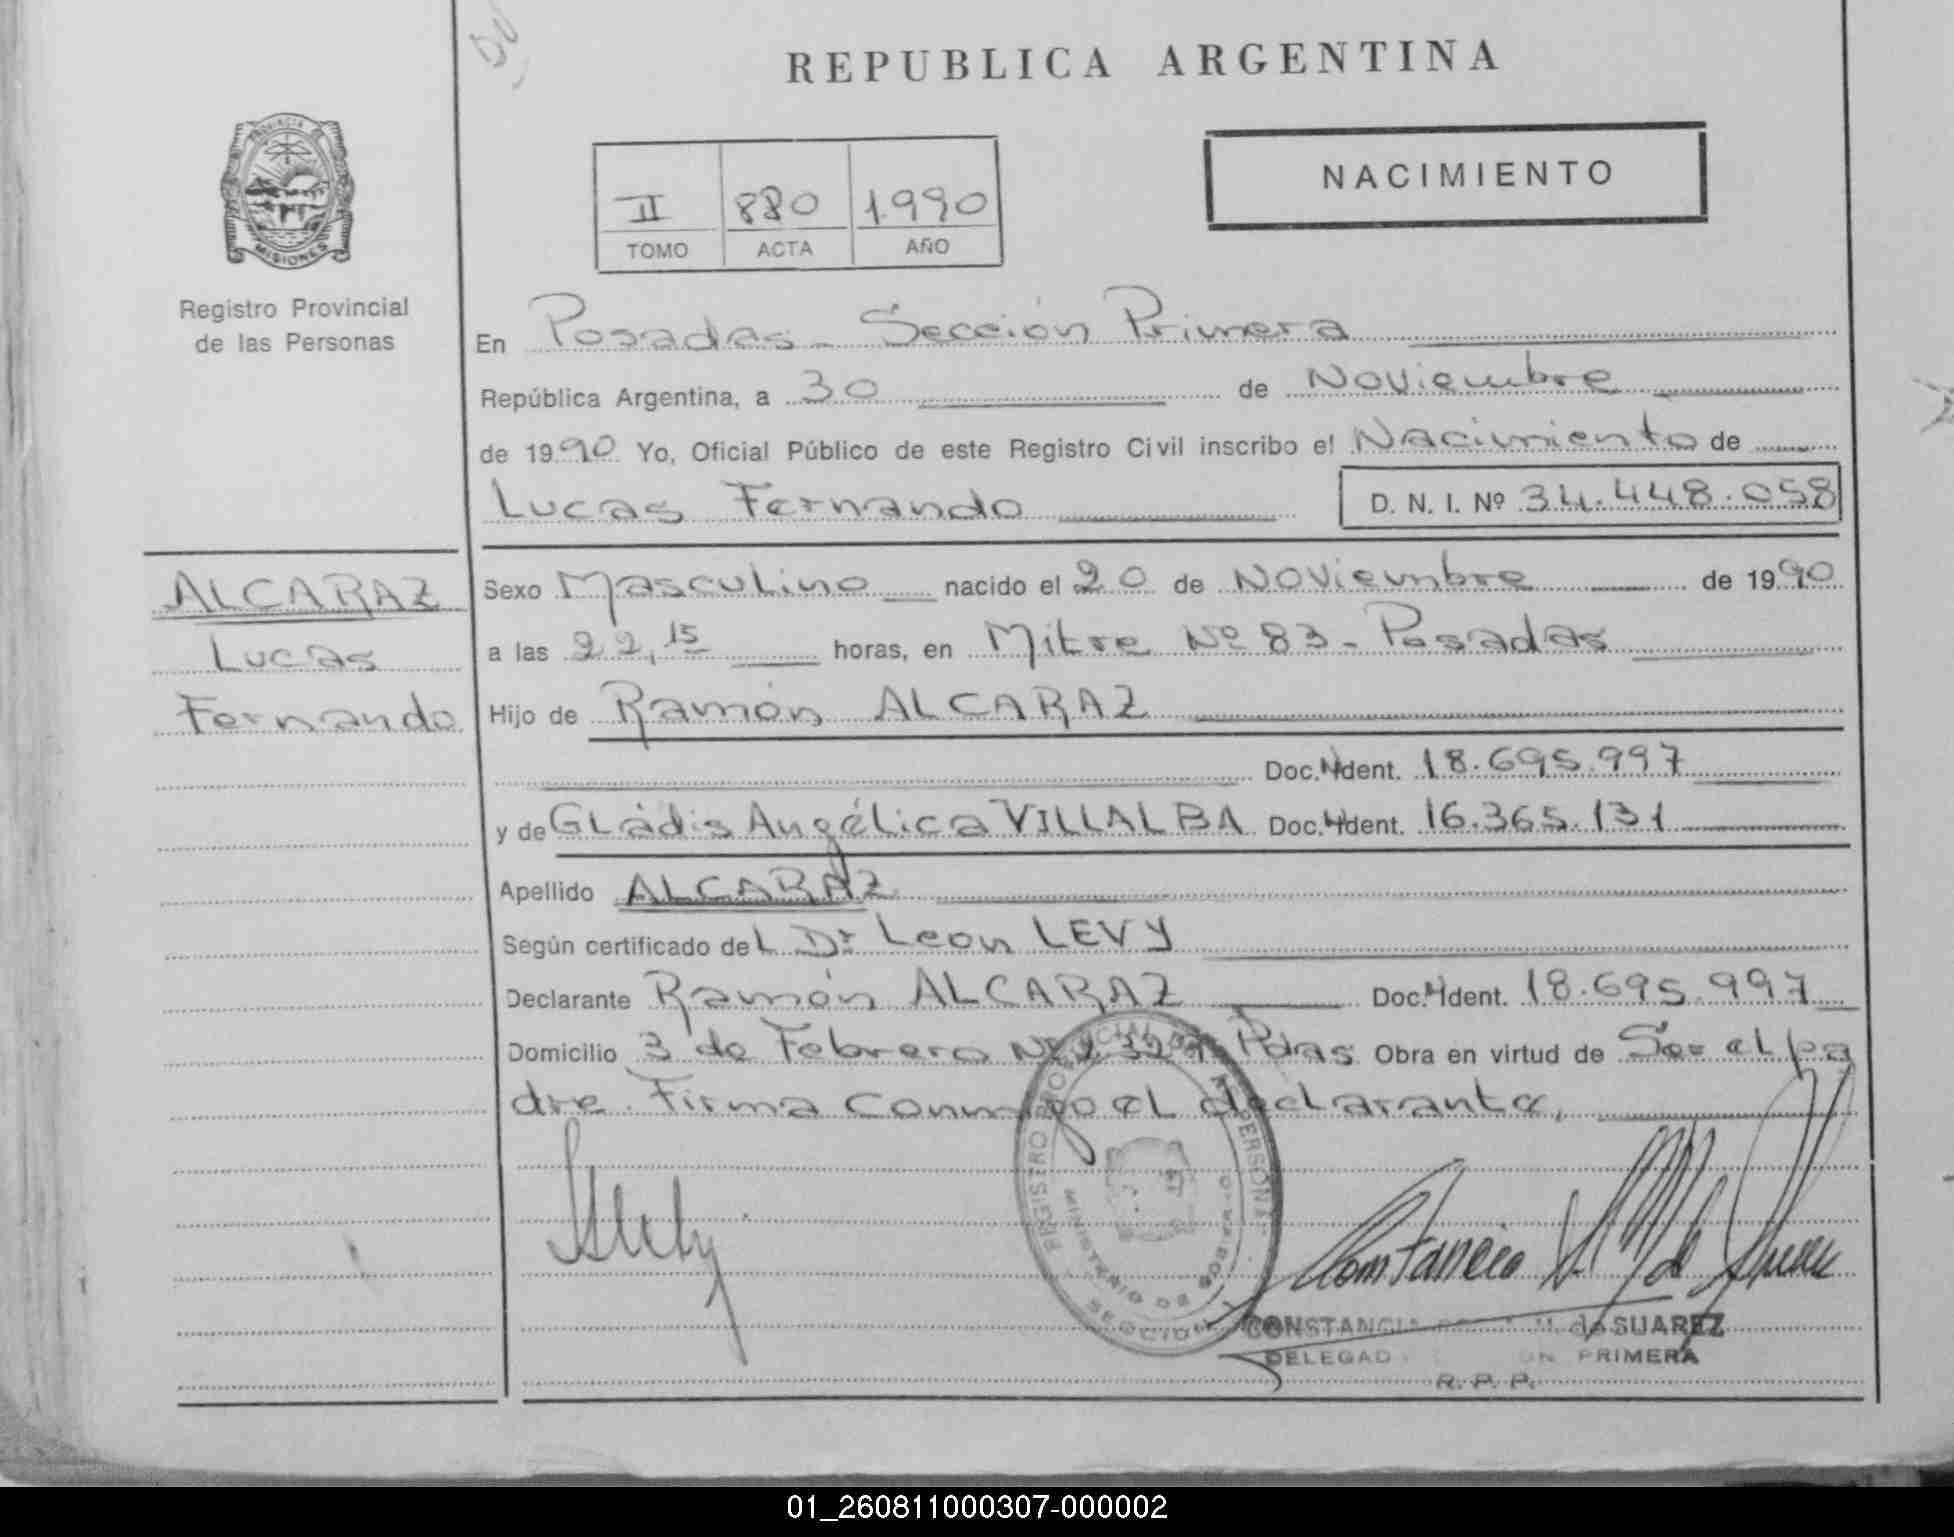 REPUBLICA ARGENTINA
PROVINCIA DE
MISIONES
NACIMIENTO
II 880 1990
TOMO ACTA AÑO
Registro Provincial
de las Personas
En Posadas - Sección Primera
República Argentina, a 30 de Noviembre
de 1990 Yo, Oficial Público de este Registro Civil inscribo el Nacimiento de
Lucas Fernando D. N. I. Nº 34.448.058
ALCARAZ
Lucas
Fernando
Sexo Masculino nacido el 20 de Noviembre de 1990
a las 22,15 horas, en Mitre Nº 83 - Posadas
Hijo de Ramón ALCARAZ
Doc. Ident. 18.695.997
y de Gládis Angélica VILLALBA Doc. Ident. 16.365.131
Apellido ALCARAZ
Según certificado del Dr Leon LEVY
Declarante Ramón ALCARAZ Doc. Ident. 18.695.997
Domicilio 3 de Febrero Pdas Obra en virtud de Ser el pa
dre. Firma conmigo el declarante,
REGISTRO PROVINCIAL DE LAS PERSONAS
MINISTERIO DE GOBIERNO
SECCION
Constancia
CONSTANCIA M. de SUAREZ
DELEGAD PRIMERA
R. P. P.
01_260811000307-000002